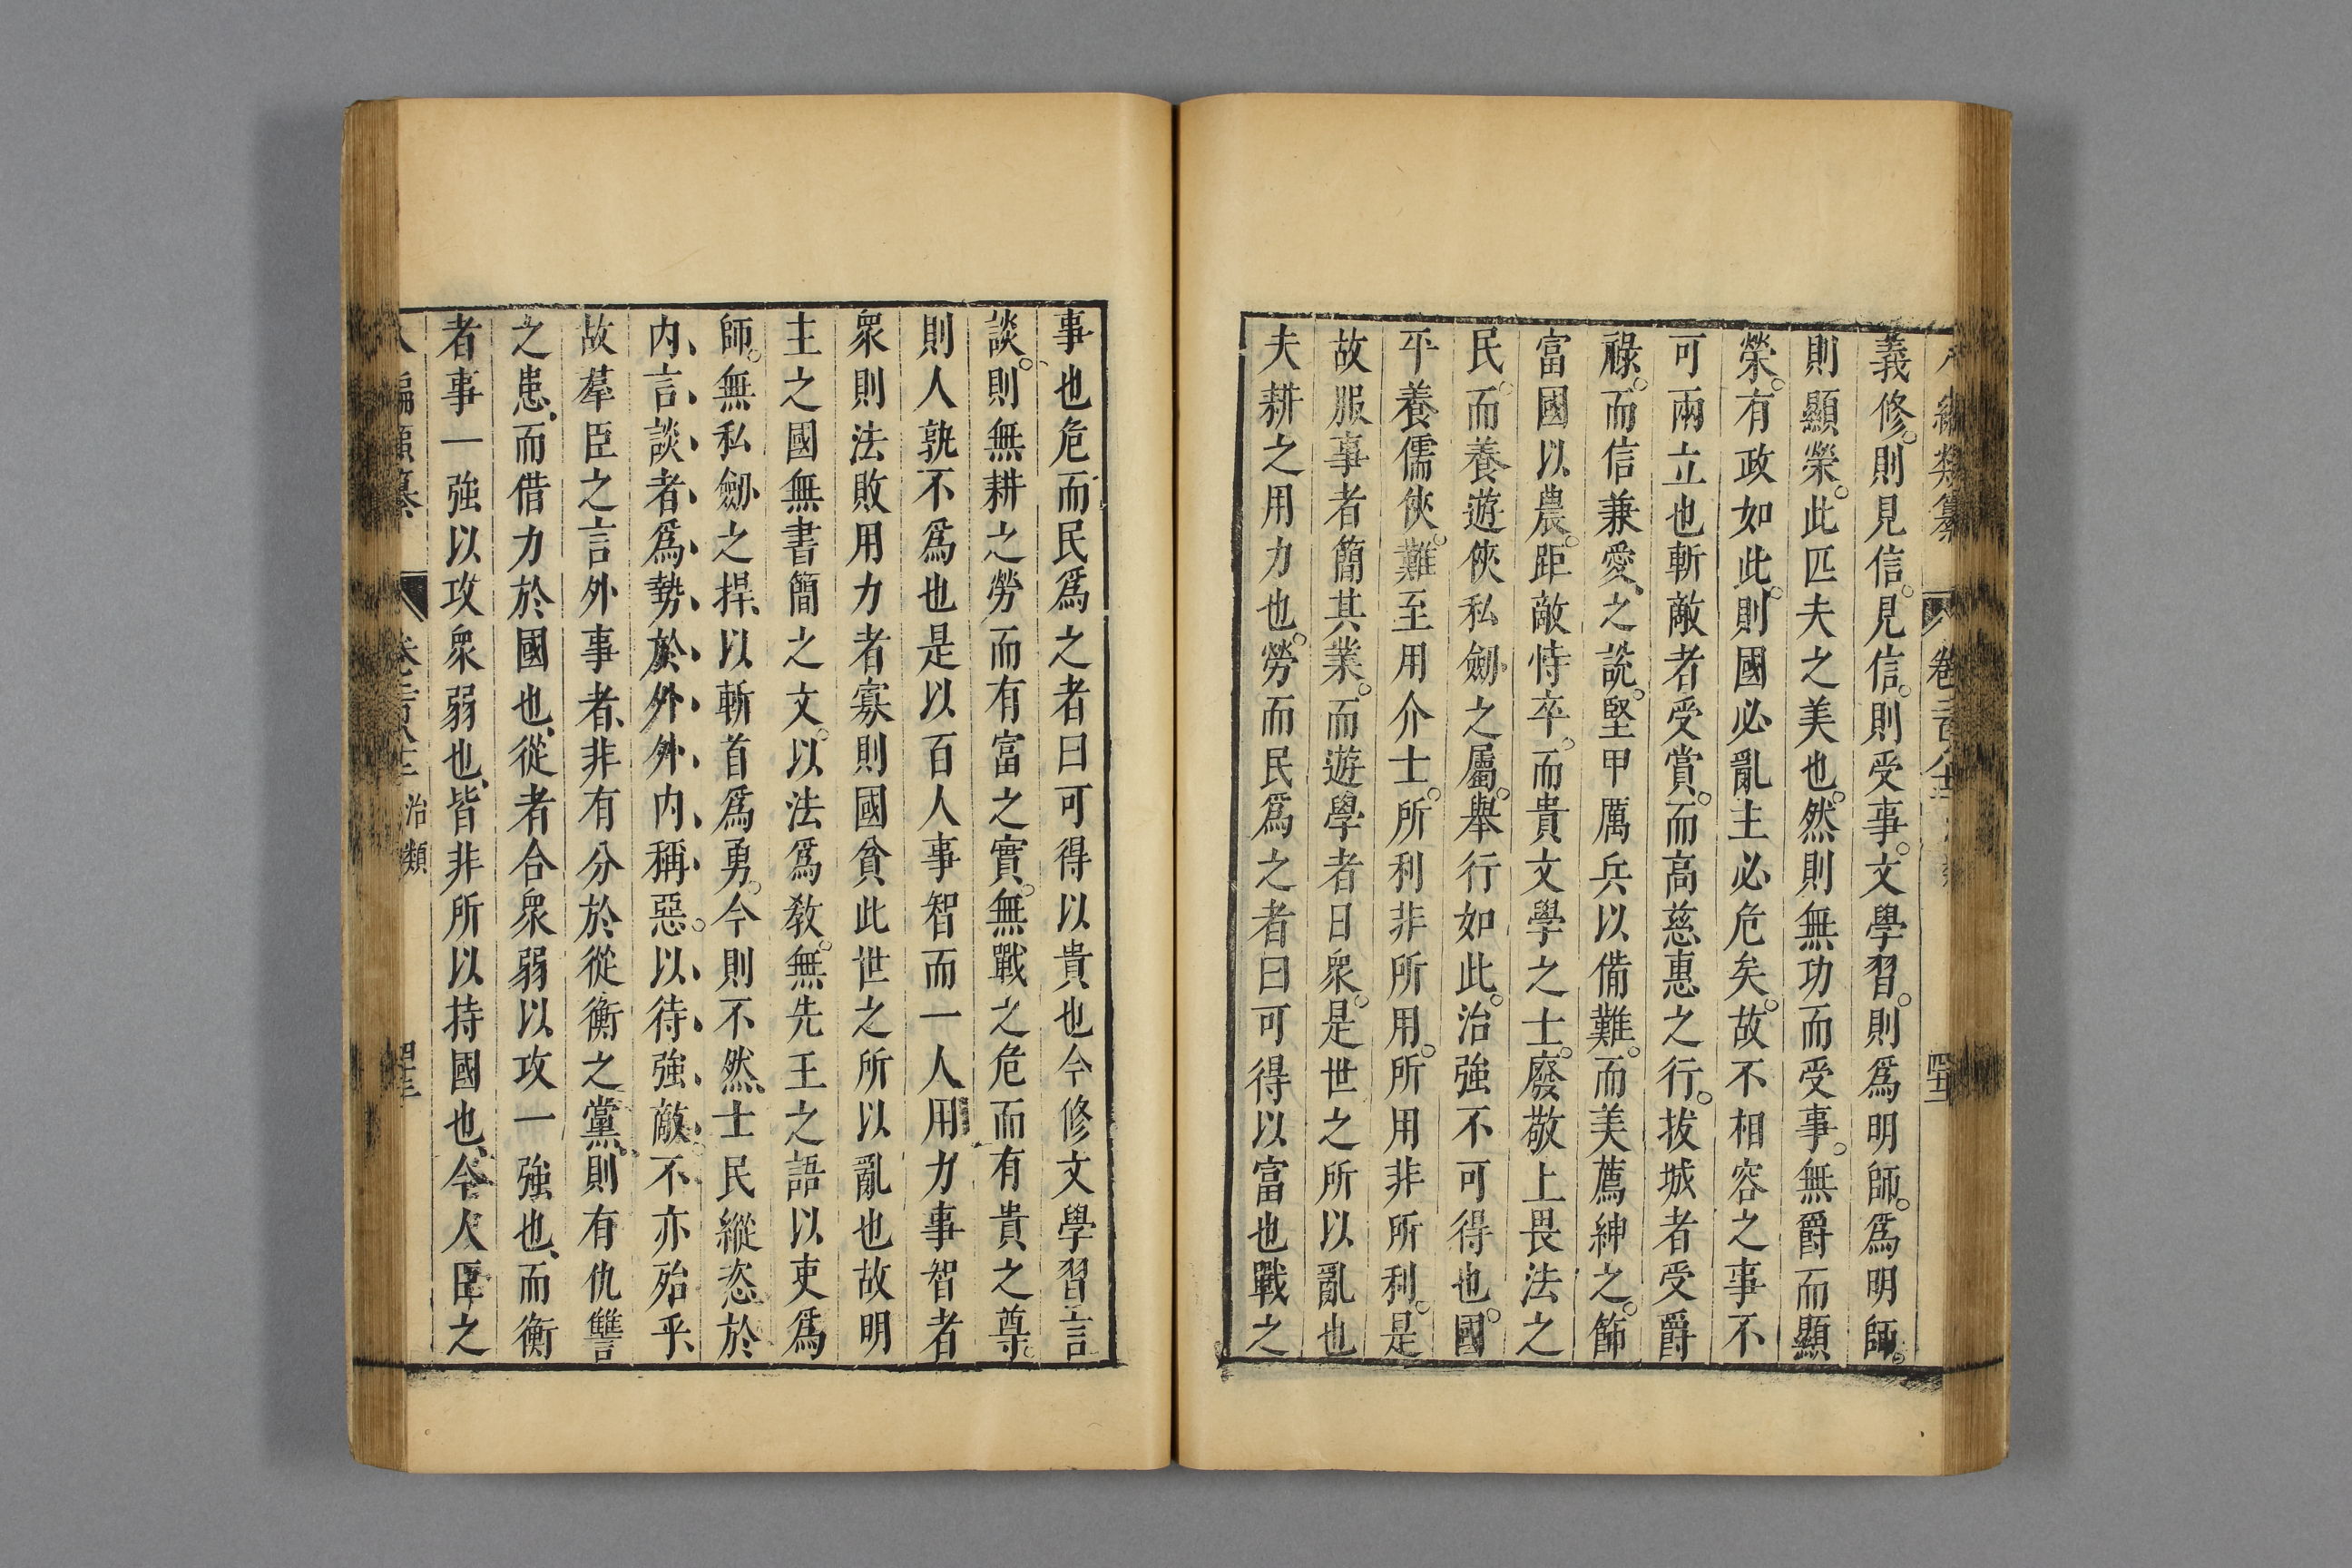 義修則見信見信則受事文學習則爲明師爲明師
則顯榮此匹夫之美也然則無功而受事無爵而顯
榮有政如此則國必亂主必危矣故不相容之事不
可兩立也斬敵者受賞而高慈惠之行拔城者受爵
祿而信兼愛之說堅甲厲兵以備難而美薦紳之飾
富國以農距敵恃卒而貴文學之士廢敬上畏法之
民而養遊俠私劒之屬舉行如此治強不可得也國
平養儒俠難至用介士所利非所用所用非所利是
故服事者簡其業而遊學者日衆是世之所以亂也
夫耕之用力也勞而民爲之者曰可得以富也戰之
事也危而民爲之者曰可得以貴也今修文學習言
談則無耕之勞而有富之實無戰之危而有貴之尊
則人孰不爲也是以百人事智而一人用力事智者
衆則法敗用力者寡則國貧此世之所以亂也故明
主之國無書簡之文以法爲教無先王之語以吏爲
師無私劒之捍以斬首爲勇今則不然士民縱恣於
內言談者爲勢於外外內稱惡以待強敵不亦殆乎
故羣臣之言外事者非有分於從衡之黨則有仇讐
之患而借力於國也從者合衆弱以攻一強也而衡
者事一強以攻衆弱也皆非所以持國也今人臣之
治類